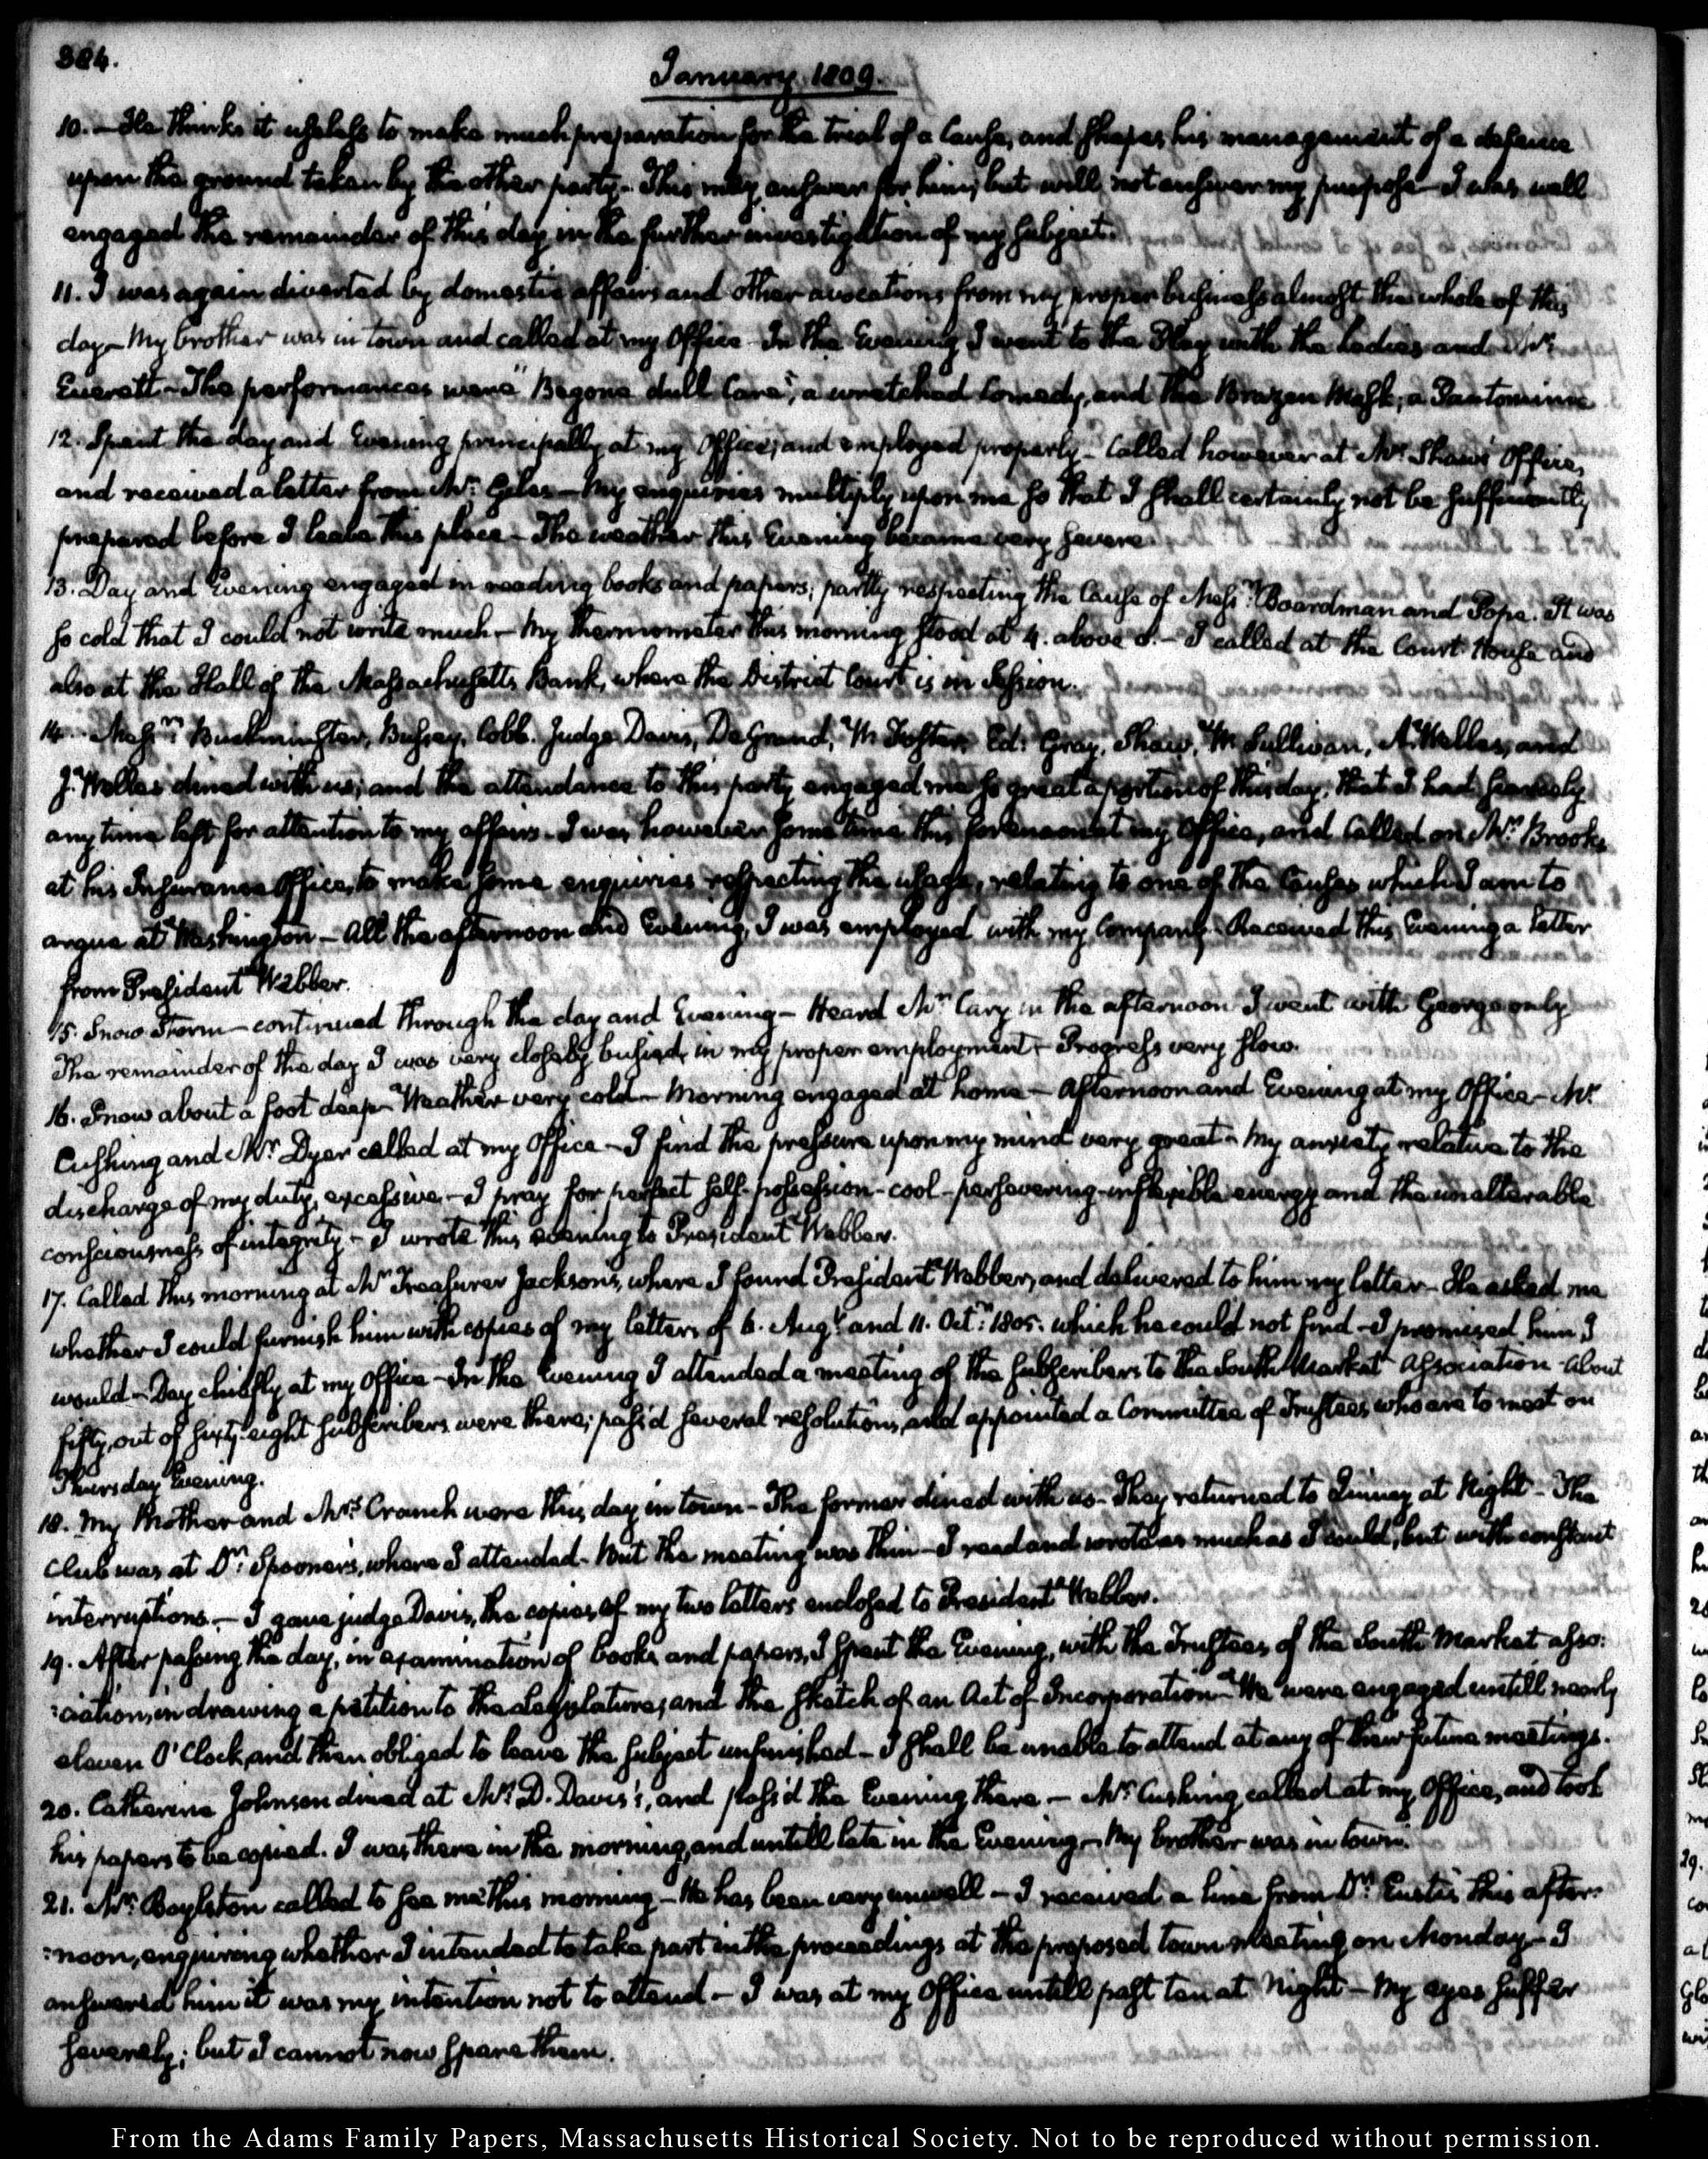 384.
January 1809.
10. — He thinks it useless to make much preparation for the trial of a Cause, and shapes his management of a defence
upon the ground taken by the other party. This may answer for him; but will not answer my purpose — I was well
engaged the remainder of this day in the further investigation of my subject.
11. I was again diverted by domestic affairs and other avocations from my proper business almost the whole of this
day — My brother was in town and called at my Office. In the Evening I went to the Play with the Ladies and Mr.
Everett — The performances were "Begone dull Care", a wretched Comedy, and the Brazen Mask, a Pantomime
12. Spent the day and Evening principally at my Office; and employed properly — Called however at Mr. Shaw's Office,
and received a letter from Mr. Giles — My enquiries multiply upon me so that I shall certainly not be sufficiently
prepared before I leave this place — The weather this Evening became very severe.
13. Day and Evening engaged in reading books and papers; partly respecting the Cause of Messrs. Boardman and Pope. It was
so cold that I could not write much — My thermometer this morning stood at 4. above 0. — I called at the Court House and
also at the Hall of the Massachusetts Bank, where the District Court is in Session.
14. Messrs. Buckminster, Bussey, Cobb. Judge Davis, DeGrand, W. Foster, Ed. Gray, Shaw, W. Sullivan, A. Welles, and
J. Welles dined with us; and the attendance to this party engaged me so great a portion of this day, that I had scarcely
any time left for attention to my affairs — I was however some time this forenoon at my Office, and called on Mr. Brooks
at his Insurance Office, to make some enquiries respecting the usage, relating to one of the Causes which I am to
argue at Washington — All the afternoon and Evening, I was employed with my Company. Received this Evening a letter
from President Webber.
15. Snow Storm — continued through the day and Evening — Heard Mr. Cary in the afternoon I went with George only
The remainder of the day I was very closely busied, in my proper employment — Progress very slow.
16. Snow about a foot deep — Weather very cold — Morning engaged at home — Afternoon and Evening at my Office — Mr.
Cushing and Mr. Dyer called at my Office — I find the pressure upon my mind very great — My anxiety relative to the
discharge of my duty, excessive. — I pray for perfect self-possession — cool — persevering — inflexible energy and the unalterable
consciousness of integrity — I wrote this evening to President Webber.
17. Called this morning at Mr. Treasurer Jackson's, where I found President Webber, and delivered to him my letter — He asked me
whether I could furnish him with copies of my letters of 6. Augt. and 11. Octr. 1805. which he could not find — I promised him I
would — Day chiefly at my Office — In the Evening I attended a meeting of the subscribers to the South Market Association — About
fifty, out of sixty-eight subscribers were there; pass'd several resolutions, and appointed a Committee of Trustees who are to meet on
Thursday Evening.
18. My Mother and Mrs. Cranch were this day in town — The former dined with us — They returned to Quincy at Night — The
Club was at Dr. Spooner's, where I attended — But the meeting was thin — I read and wrote as much as I could, but with constant
interruptions. — I gave judge Davis, the copies of my two letters enclosed to President Webber.
19. After passing the day, in examination of books and papers, I spent the Evening, with the Trustees of the South Market asso:
:ciation, in drawing a petition to the Legislature, and the sketch of an Act of Incorporation — We were engaged untill nearly
eleven O'Clock, and then obliged to leave the subject unfinished — I shall be unable to attend at any of their future meetings.
20. Catherine Johnson dined at Mr. D. Davis's, and pass'd the Evening there. — Mr. Cushing called at my Office, and took
his papers to be copied. I was there in the morning, and untill late in the Evening — My brother was in town.
21. Mr. Boylston called to see me this morning — He has been very unwell — I received a line from Dr. Eustis this after:
:noon, enquiring whether I intended to take part in the proceedings at the proposed town meeting on Monday — I
answered him it was my intention not to attend — I was at my Office untill past ten at Night — My eyes suffer
severely; but I cannot now spare them.
From the Adams Family Papers, Massachusetts Historical Society. Not to be reproduced without permission.